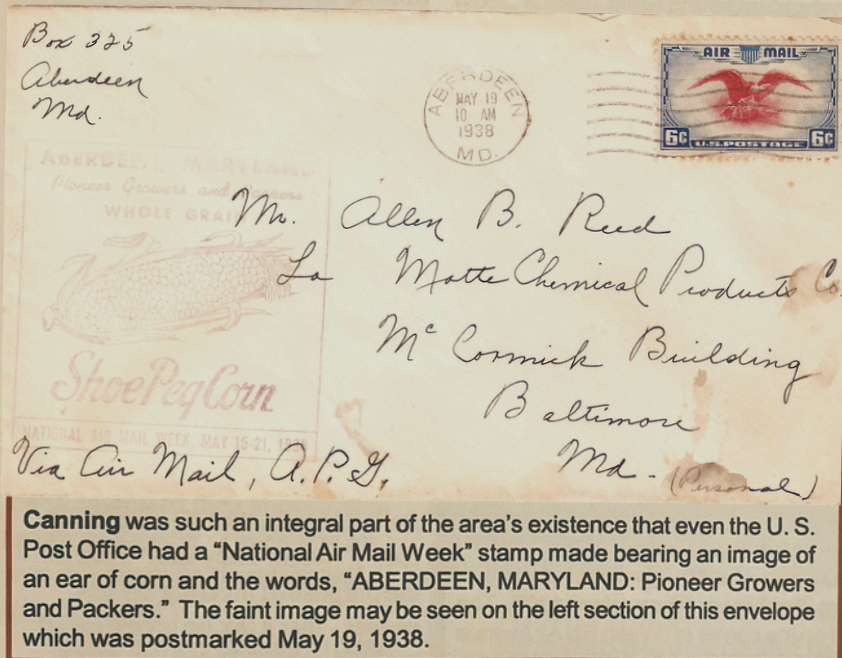 Box 325
Aberdeen
Md.
ABERDEEN
MAY 19
10 AM
1938
MD.
AIR MAIL
6¢ 6¢
U.S. POSTAGE
ABERDEEN, MARYLAND
Pioneer Growers and Packers
WHOLE GRAIN
Shoe Peg Corn
NATIONAL AIR MAIL WEEK, MAY 15-21, 1938
Mr. Allen B. Reed
La Motte Chemical Products Co.
McCormick Building
Baltimore
Md.
(Personal)
Via Air Mail, A.P.G.
Canning was such an integral part of the area's existence that even the U. S.
Post Office had a “National Air Mail Week” stamp made bearing an image of
an ear of corn and the words, “ABERDEEN, MARYLAND: Pioneer Growers
and Packers.” The faint image may be seen on the left section of this envelope
which was postmarked May 19, 1938.